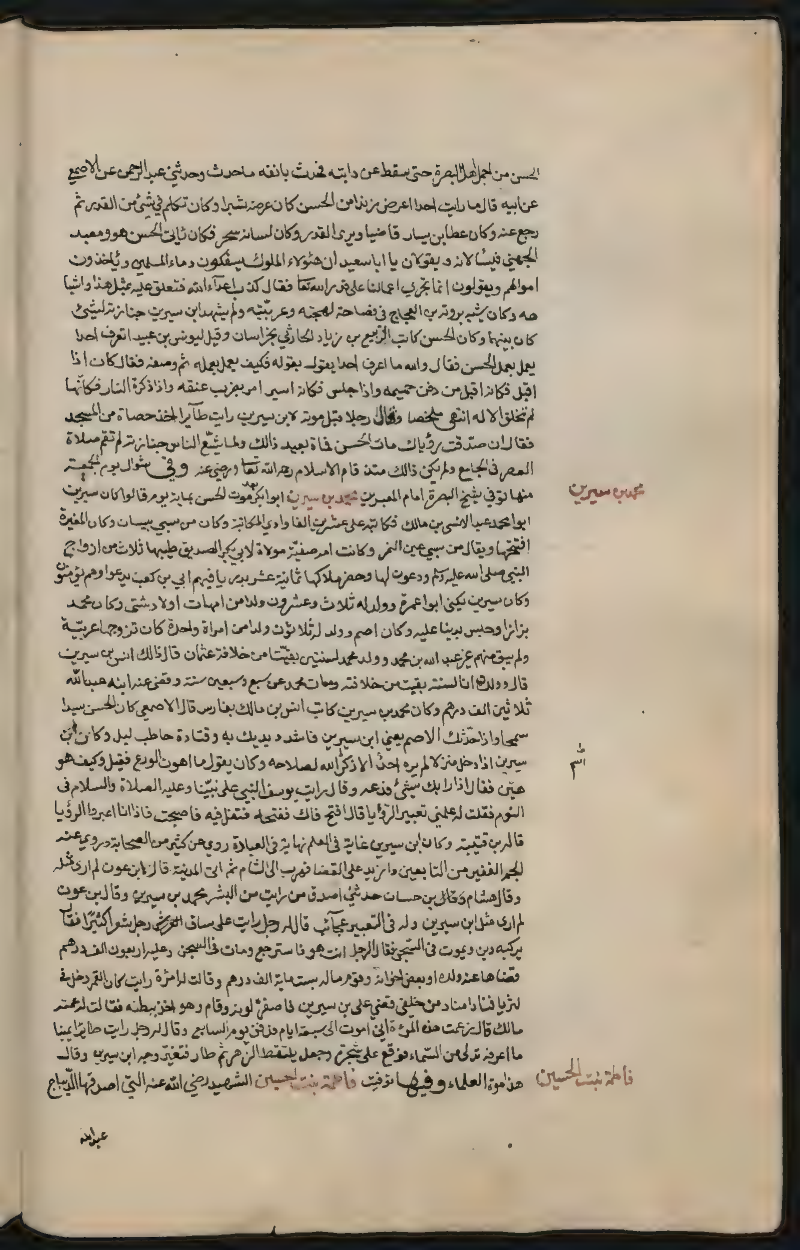 الحسن من اجمل اهل البصرة حتى سقط عن دابته فحدث بانفه ما حدث وحدثني عبد الرحمن عن الاصمعي
عن ابيه قال ما رايت احدا اعرض زندا من الحسن كان عرضه شبرا وكان تكلم في شئ من القدر ثم
رجع عنه وكان عطا بن يسار قاضيا ويرى القدر وكان لسانه سحر فكان ثاني الحسن هو ومعبد
الجهني فيسألانه ويقولان يا ابا سعيد ان هئولاء الملوك يسفكون دماء المسلمين وياخذون
اموالهم ويقولون انما تجرى اعمالنا على قدر الله تعا فقال كذب اعداء الله فتعلق عليه بمثل هذا واشبا
هه وكان شبه بروبة بن العجاج في فصاحة لهجته وعربيته ولم يشهد ابن سيرين جنازته لشئ
كان بينهما وكان الحسن كاتب الربيع بن زياد الحارثي بخراسان وقيل ليونس بن عبيد اتعرف احدا
يعمل بعمل الحسن فقال والله ما اعرف احدا يقول بقوله فكيف يعمل بعمله ثم وصفه فقال كان اذا
اقبل فكانه اقبل من دفن حميمه واذا جلس فكانه اسير امر بضرب عنقه واذا ذكرة النار فكانها
لم تخلق الا له انتهى ملخصا وقال رجلا قبل موته لابن سيرين رايت طائرا اخذ حصاة من المسجد
فقال ان صدقت رؤياك مات الحسن فمات بعيد ذالك ولما شيع الناس جنازته لم تقم صلاة
العصر في الجامع ولم يكن ذالك منذ قام الاسلام رحمه الله تعا ورضي عنه وفي شوال يوم الجمعة
منها توفي شيخ البصرة امام المعبرين محمد بن سيرين ابوا بكر بعد موت الحسن بماية يوم قالوا كان سيرين
ابوا محمد عبد الانس بن مالك فكاتبه على عشرين الفا وادى المكاتبة وكان من سبي بيسان وكان المغيرة
افتتحها ويقال من سبي عين التمر وكانت امه صفية مولاة لابي بكر الصديق طيبها ثلاث من ازواج
النبي صلى الله عليه وسلم ودعون لها وحضر ملاكها ثمانية عشر بدريا فيهم ابي بن كعب يدعوا وهم يؤمنون
وكان سيرين يكنى ابوا عمرة وولد له ثلاث وعشرون ولدا من امهات اولاد شتى وكان محمد
بزازا وحبس بدينا عليه وكان اصم وولد له ثلاثون ولدا من امراة واحدة كان تزوجها عربية
ولم يبق منهم غير عبد الله بن محمد وولد محمد لسنتين بقيتا من خلافة عثمان قال ذالك انس بن سيرين
قال وولدت انا لسنة بقيت من خلافته ومات محمد عن سبع وسبعين سنة وقضى عنه ابنه عبد الله
ثلاثين الف درهم وكان محمد بن سيرين كاتب انس بن مالك بفارس قال الاصمعي كان الحسن سيدا
سمحا واذا حدثك الاصم يعني ابن سيرين فاشدد يديك به وقتادة حاطب ليل وكان ابن
سيرين اذا دخل منزلا لم يره احدا الا ذكر الله لصلاحه وكان يقول ما اهون الورع فقيل وكيف هو
هين فقال اذا رابك شئ فدعه وقال رايت يوسف النبي على نبينا وعليه الصلاة والسلام في
النوم فقلت له علمني تعبير الرؤيا قال افتح فاك ففتحه فتفل فيه فاصبحت فاذا انا اعبر الرؤيا
قاله بن قتيبة وكان ابن سيرين غاية في العلم نهاية في العبادة روى عن كثير من الصحابة وروى عنه
الجم الغفير من التابعين واريد على القضا فهرب الى الشام ثم اتى المدينة قال ابن عون لم ارى مثله
وقال هشام بن حسان حدثني اصدق من رايت من البشر محمد بن سيرين وقال بن عون
لم ارى مثل ابن سيرين وله في التعبير عجائب قال له رجل رايت على ساق رجل شعرا كثيرا فقال
يركبه دين ويموت في السجن فقال الرجل انت هو فاسترجع ومات في السجن وعليه اربعون الف درهم
قضاها عنه ولده او بعض اخوانه وقوم ماله بستماية الف درهم وقالت له امرٔة رايت كان القمر دخل في
الثريا فنادا مناد من خلفي قصي على بن سيرين فاصفر لونه وقام وهو اخذ ببطنه فقالت له عمته
مالك قال زعمت هذه المرٔة اني اموت الى سبعة ايام فدفن يوم السابع وقال له رجل رايت طائرا
ما اعرفه نزل من السماء فوقع على شجرة وجعل يلتقط الزهر ثم طار فتغير وجه ابن سيرين وقال
هذا موت العلماء وفيها توفيت فاطمة بنت الحسين الشهيد رضي الله عنه التي اصدقها الديباج
محمد بن سيرين
فاطمة بنت الحسين
عبد الله